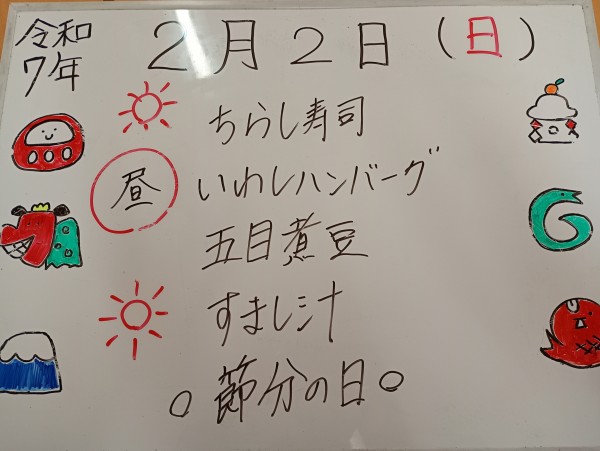 令和
7年
2月2日(日)
ちらし寿司
昼
いわしハンバーグ
五目煮豆
すまし汁
○節分の日○